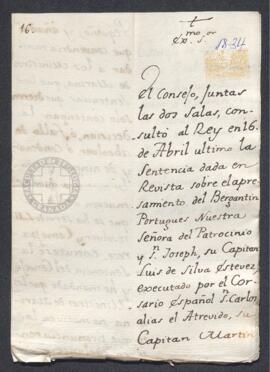 16
18-34
Exmo. Sor
El Consejo, Juntas
las dos Salas, con-
sultó al Rey en 16.
de Abril ultimo la
Sentencia dada en
Revista sobre el apre-
samento del Bergantin
Portugues Nuestra
Señora del Patrocinio
y Sn. Joseph, su Capitan
Luis de Silva Estevez,
executado por el Cor-
sario Español Sn. Carlos,
alias el Atrevido, su
Capitan Martin